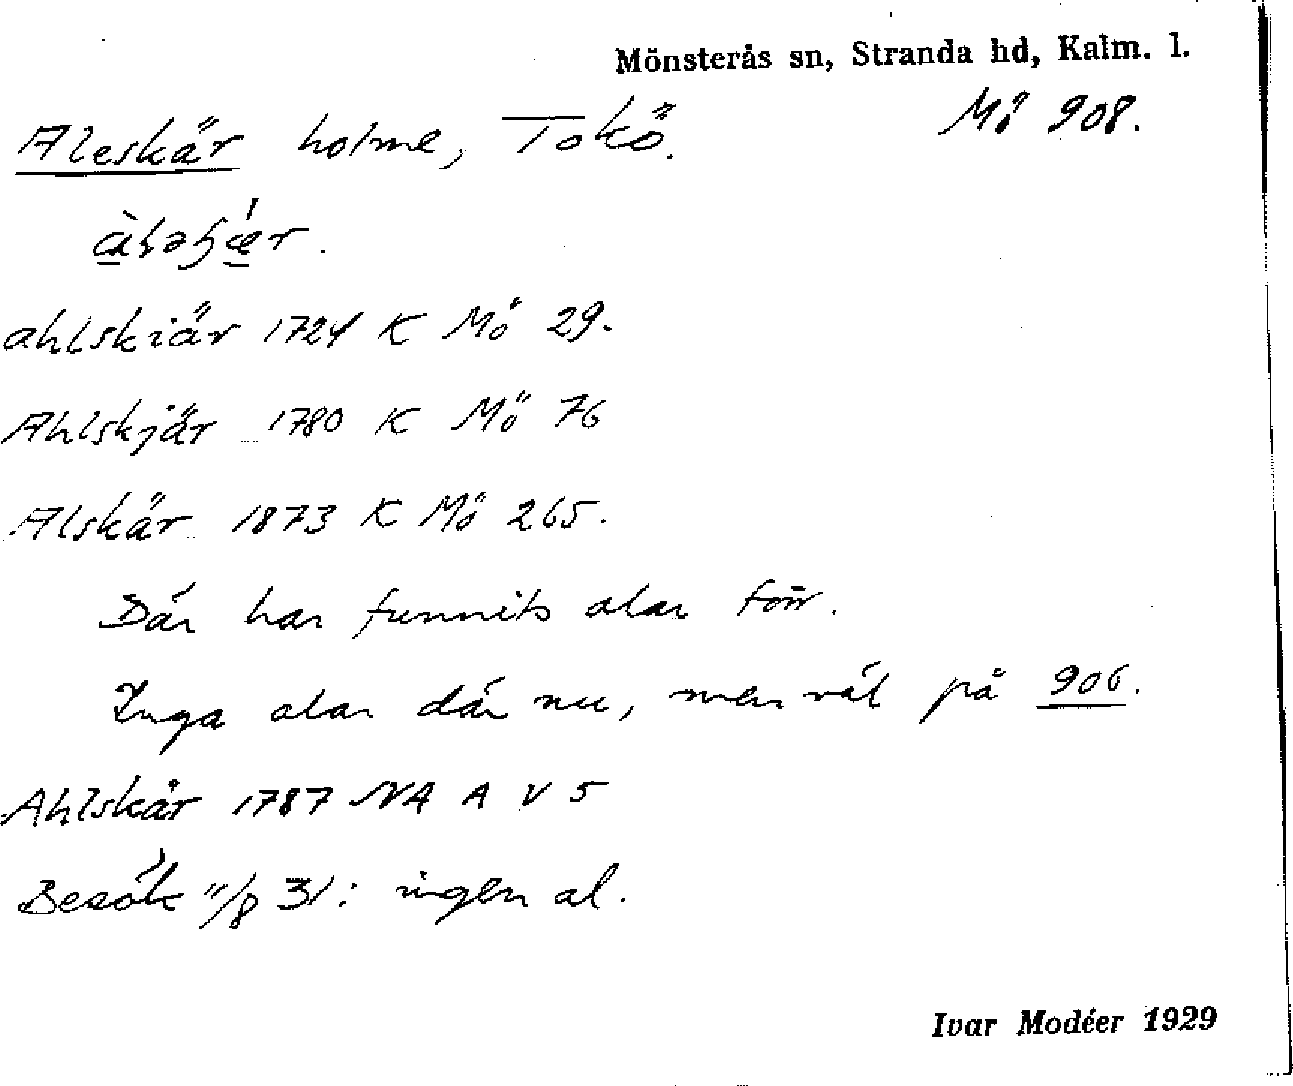 Mönsterås sn, Stranda hd, Kalm. l.
Aleskär holme, Tokö. Mö 908.
ahlskiär 1724 K Mö 29.
Ahlskjär 1780 K Mö 76
Alskär 1873 K Mö 265.
Där har funnits alar förr.
Inga alar där nu, men väl på 906.
Ahlskär 1787 NA A V 5
Besök 11/8 31: ingen al.
Ivar Modéer 1929